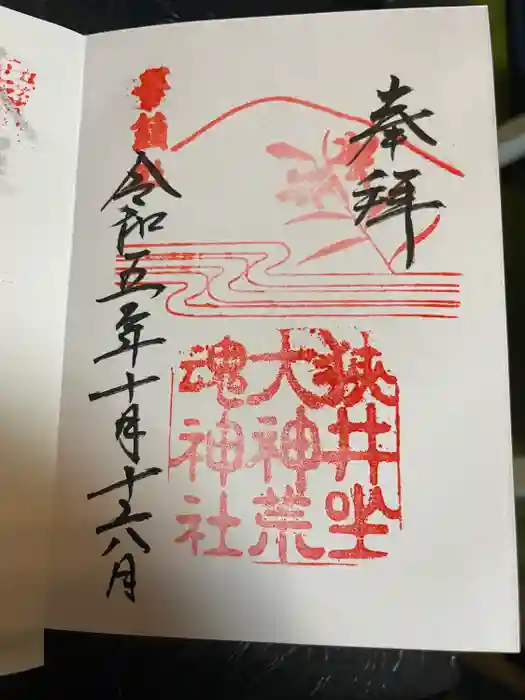 奉拝
狭井坐
大神荒
魂神社
華鎮社
令和五年十月十六日